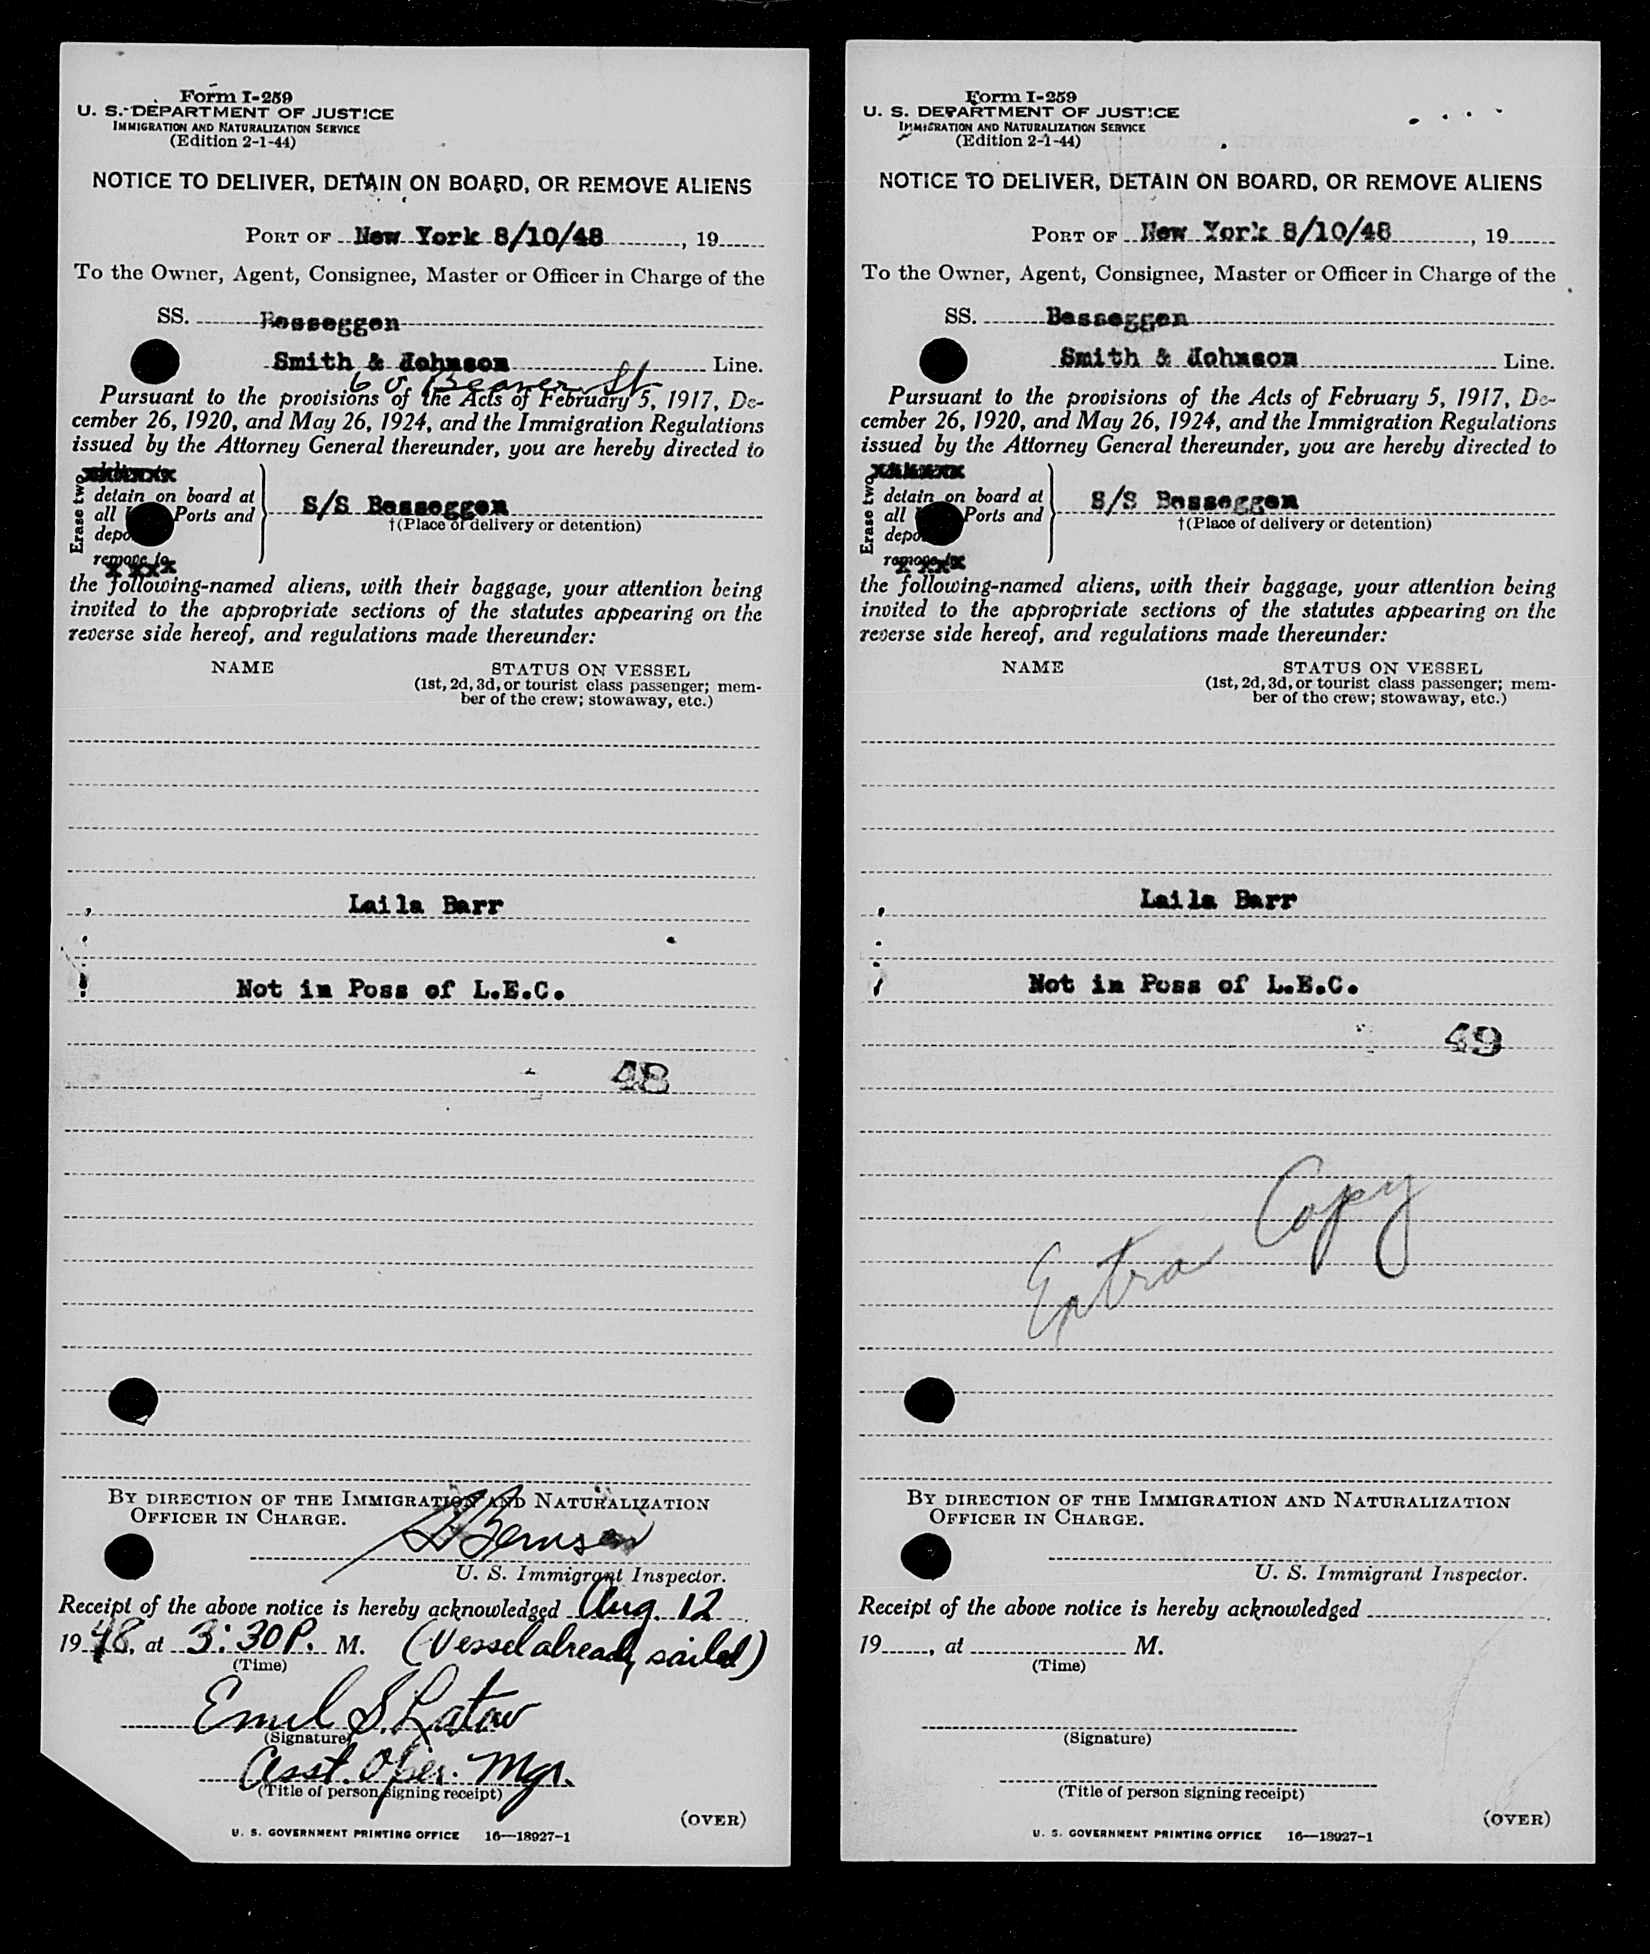 Form I-259
U. S. DEPARTMENT OF JUSTICE
IMMIGRATION AND NATURALIZATION SERVICE
(Edition 2-1-44)
NOTICE TO DELIVER, DETAIN ON BOARD, OR REMOVE ALIENS
PORT OF New York 8/10/48, 19
To the Owner, Agent, Consignee, Master or Officer in Charge of the
SS. Besseggen
Smith & Johnson Line.
60 Beaver St
Pursuant to the provisions of the Acts of February 5, 1917, De-
cember 26, 1920, and May 26, 1924, and the Immigration Regulations
issued by the Attorney General thereunder, you are hereby directed to
Erase two
detain on board at
all Ports and
depo
remove to
S/S Besseggen
†(Place of delivery or detention)
the following-named aliens, with their baggage, your attention being
invited to the appropriate sections of the statutes appearing on the
reverse side hereof, and regulations made thereunder:
NAME STATUS ON VESSEL
(1st, 2d, 3d, or tourist class passenger; mem-
ber of the crew; stowaway, etc.)
Laila Barr
Not in Poss of L.E.C.
48
BY DIRECTION OF THE IMMIGRATION AND NATURALIZATION
OFFICER IN CHARGE.
U. S. Immigrant Inspector.
Receipt of the above notice is hereby acknowledged Aug. 12
1948, at 3:30 P. M. (Vessel already sailed)
(Time)
Emil S. Latow
(Signature)
Asst. Oper. Mgr.
(Title of person signing receipt)
(OVER)
U. S. GOVERNMENT PRINTING OFFICE 16—18927-1
Form I-259
U. S. DEPARTMENT OF JUSTICE
IMMIGRATION AND NATURALIZATION SERVICE
(Edition 2-1-44)
NOTICE TO DELIVER, DETAIN ON BOARD, OR REMOVE ALIENS
PORT OF New York 8/10/48, 19
To the Owner, Agent, Consignee, Master or Officer in Charge of the
SS. Besseggen
Smith & Johnson Line.
Pursuant to the provisions of the Acts of February 5, 1917, De-
cember 26, 1920, and May 26, 1924, and the Immigration Regulations
issued by the Attorney General thereunder, you are hereby directed to
Erase two
detain on board at
all Ports and
depo
remove to
S/S Besseggen
†(Place of delivery or detention)
the following-named aliens, with their baggage, your attention being
invited to the appropriate sections of the statutes appearing on the
reverse side hereof, and regulations made thereunder:
NAME STATUS ON VESSEL
(1st, 2d, 3d, or tourist class passenger; mem-
ber of the crew; stowaway, etc.)
Laila Barr
Not in Poss of L.E.C.
49
Extra Copy
BY DIRECTION OF THE IMMIGRATION AND NATURALIZATION
OFFICER IN CHARGE.
U. S. Immigrant Inspector.
Receipt of the above notice is hereby acknowledged
19, at M.
(Time)
(Signature)
(Title of person signing receipt)
(OVER)
U. S. GOVERNMENT PRINTING OFFICE 16—18927-1